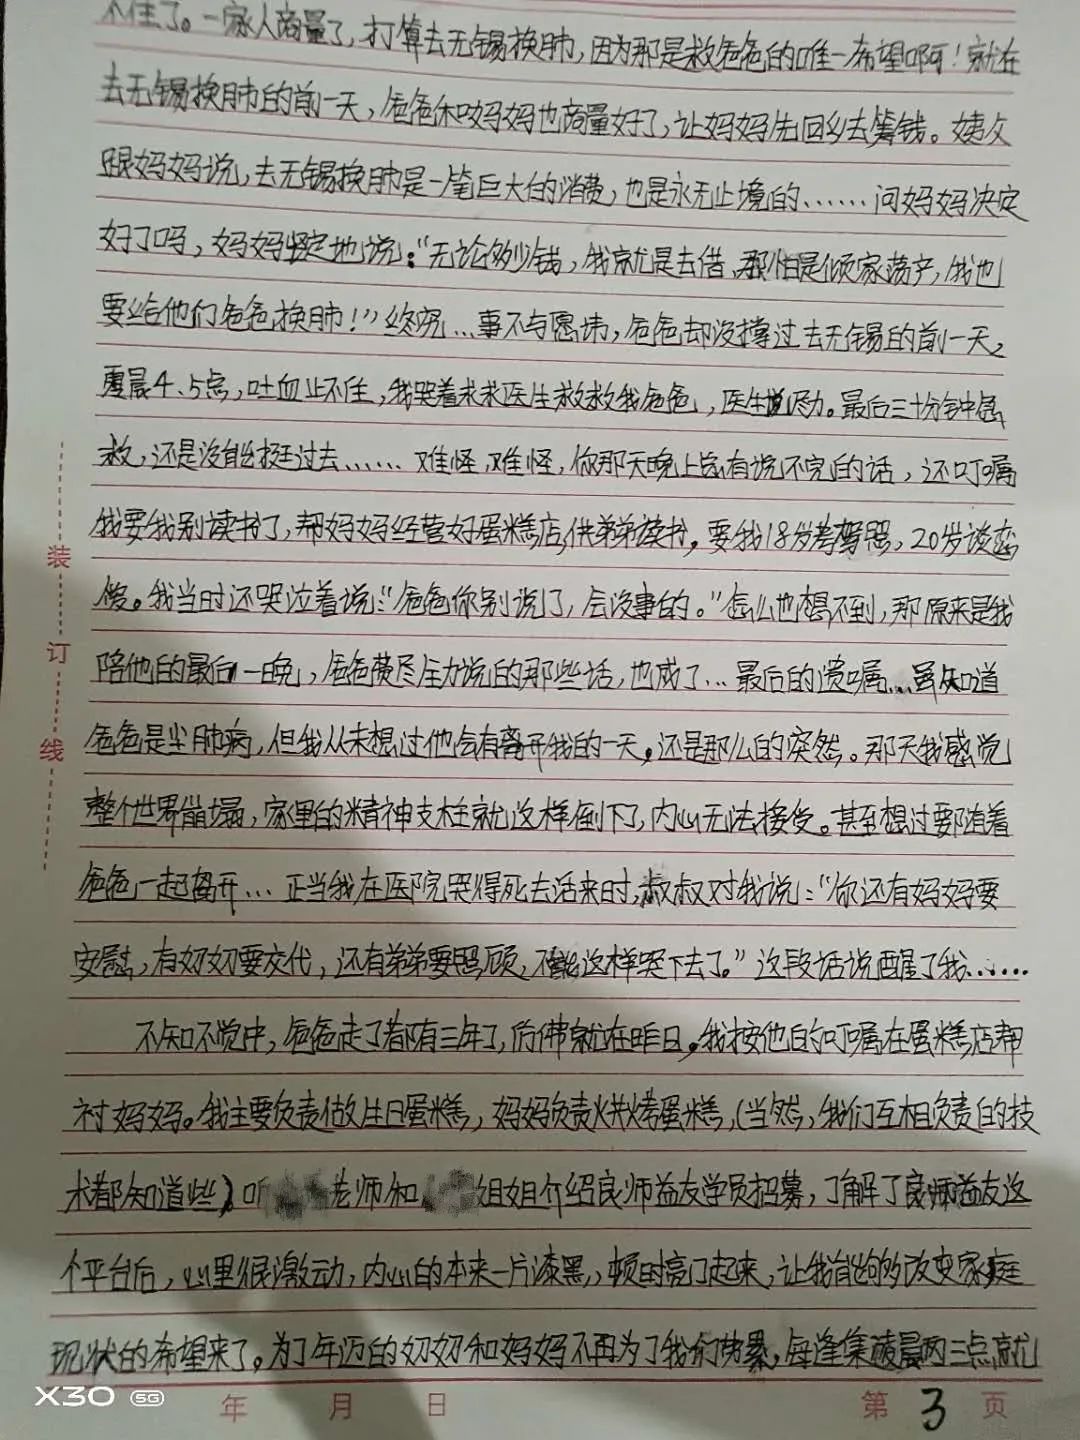 不住了。一家人商量了，打算去无锡换肺，因为那是救爸爸的唯一希望啊！就在
去无锡换肺的前一天，爸爸和妈妈也商量好了，让妈妈先回乡去筹钱。姨父
跟妈妈说，去无锡换肺是一笔巨大的消费，也是永无止境的……问妈妈决定
好了吗，妈妈坚定地说：“无论多少钱，我就是去借，那怕是倾家荡产，我也
要给他们爸爸换肺！”终究…事不与愿违，爸爸却没撑过去无锡的前一天，
凌晨4、5点，吐血止不住，我哭着求求医生救救我爸爸，医生说尽力。最后三十分钟急
救，还是没能挺过去……难怪，难怪，你那天晚上总有说不完的话，还叮嘱
我要我别读书了，帮妈妈经营好蛋糕店，供弟弟读书，要我18岁考驾照，20岁谈恋
爱。我当时还哭泣着说：“爸爸你别说了，会没事的。”怎么也想不到，那原来是我
陪他的最后一晚，爸爸费尽全力说的那些话，也成了…最后的遗嘱…虽知道
爸爸是尘肺病，但我从未想过他会有离开我的一天，还是那么的突然。那天我感觉
整个世界崩塌，家里的精神支柱就这样倒下了，内心无法接受。甚至想过要随着
爸爸一起离开…正当我在医院哭得死去活来时，叔叔对我说：“你还有妈妈要
安慰，有奶奶要交代，还有弟弟要照顾，不能这样哭下去了。”这段话说醒了我……
不知不觉中，爸爸走了都有三年了，仿佛就在昨日，我按他的叮嘱在蛋糕店帮
衬妈妈。我主要负责做生日蛋糕，妈妈负责烘烤蛋糕，（当然，我们互相负责的技
术都知道些）。听老师和姐姐介绍良师益友学员招募，了解了良师益友这
个平台后，心里很激动，内心的本来一片漆黑，顿时亮了起来，让我能够改变家庭
现状的希望来了。为了年迈的奶奶和妈妈不再为了我们劳累，每逢集凌晨两三点就
装
订
线
X30 5G
年 月 日
第 3 页